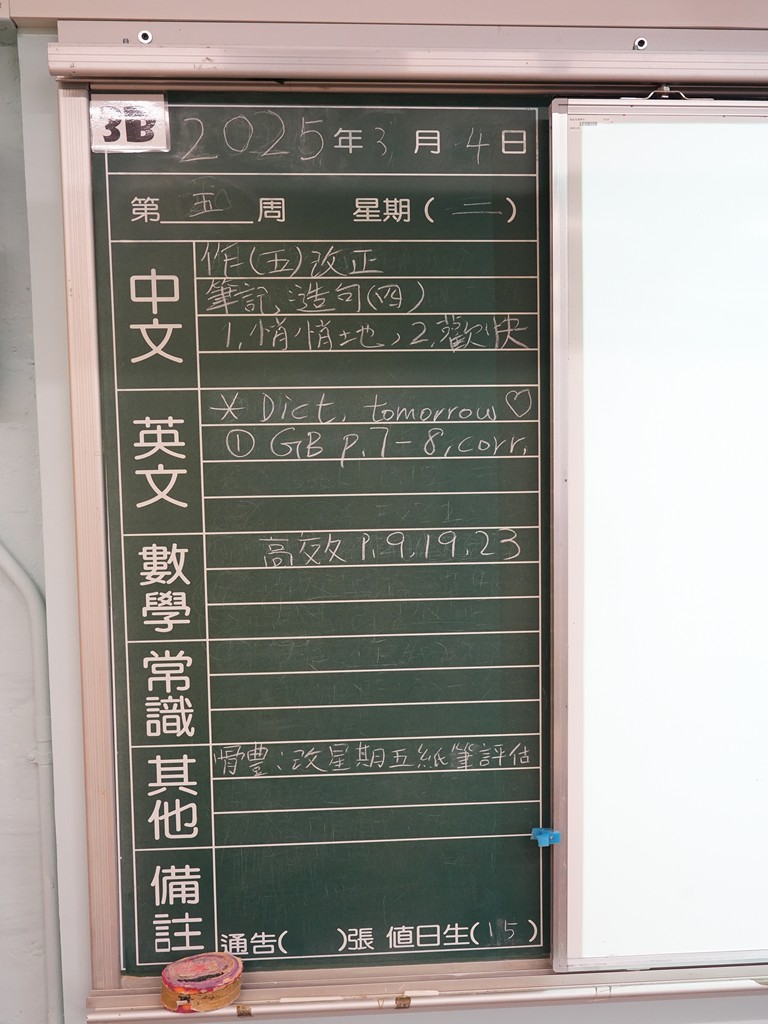 3B
2025年3月4日
第五周 星期(二)
中文
作(五)改正
筆記、造句(四)
1.悄悄地,2.歡快
英文
* Dict. tomorrow ♡
① GB p.7-8, corr.
數學
高效 P.9,19,23
常識
其他
體:改星期五紙筆評估
備註
通告( )張 值日生(15)